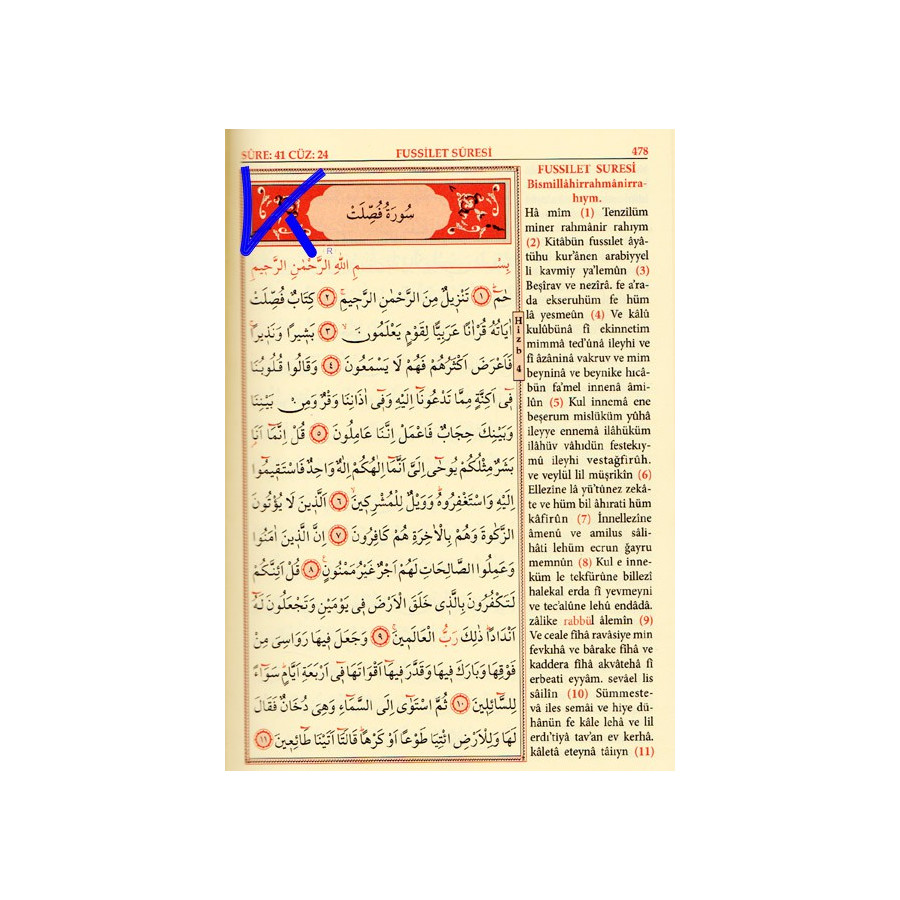 SÛRE: 41 CÜZ: 24 FUSSİLET SÛRESİ 478
سُورَةُ فُصِّلَتْ
R
بِسْمِ اللّٰهِ الرَّحْمٰنِ الرَّحِيمِ
حٰمٓ ﴿١﴾ تَنْزِيلٌ مِنَ الرَّحْمٰنِ الرَّحِيمِ ﴿٢﴾ كِتَابٌ فُصِّلَتْ
اٰيَاتُهُ قُرْاٰنًا عَرَبِيًّا لِقَوْمٍ يَعْلَمُونَ ﴿٣﴾ بَشِيرًا وَنَذِيرًا
فَاَعْرَضَ اَكْثَرُهُمْ فَهُمْ لَا يَسْمَعُونَ ﴿٤﴾ وَقَالُوا قُلُوبُنَا
فِى اَكِنَّةٍ مِمَّا تَدْعُونَا اِلَيْهِ وَفِى اٰذَانِنَا وَقْرٌ وَمِنْ بَيْنِنَا
وَبَيْنِكَ حِجَابٌ فَاعْمَلْ اِنَّنَا عَامِلُونَ ﴿٥﴾ قُلْ اِنَّمَا اَنَا
بَشَرٌ مِثْلُكُمْ يُوحٰى اِلَىَّ اَنَّمَا اِلٰهُكُمْ اِلٰهٌ وَاحِدٌ فَاسْتَقِيمُوا
اِلَيْهِ وَاسْتَغْفِرُوهُ وَوَيْلٌ لِلْمُشْرِكِينَ ﴿٦﴾ اَلَّذِينَ لَا يُؤْتُونَ
الزَّكٰوةَ وَهُمْ بِالْاٰخِرَةِ هُمْ كَافِرُونَ ﴿٧﴾ اِنَّ الَّذِينَ اٰمَنُوا
وَعَمِلُوا الصَّالِحَاتِ لَهُمْ اَجْرٌ غَيْرُ مَمْنُونٍ ﴿٨﴾ قُلْ اَئِنَّكُمْ
لَتَكْفُرُونَ بِالَّذِى خَلَقَ الْاَرْضَ فِى يَوْمَيْنِ وَتَجْعَلُونَ لَهُ
اَنْدَادًا ذٰلِكَ رَبُّ الْعَالَمِينَ ﴿٩﴾ وَجَعَلَ فِيهَا رَوَاسِىَ مِنْ
فَوْقِهَا وَبَارَكَ فِيهَا وَقَدَّرَ فِيهَا اَقْوَاتَهَا فِى اَرْبَعَةِ اَيَّامٍ سَوَاءً
لِلسَّائِلِينَ ﴿١٠﴾ ثُمَّ اسْتَوٰى اِلَى السَّمَاءِ وَهِىَ دُخَانٌ فَقَالَ
لَهَا وَلِلْاَرْضِ ائْتِيَا طَوْعًا اَوْ كَرْهًا قَالَتَا اَتَيْنَا طَائِعِينَ ﴿١١﴾
Hizb 4
FUSSILET SURESİ
Bismillâhirrahmânirra-
hıym.
Hâ mîm (1) Tenzilüm
miner rahmânir rahıym
(2) Kitâbün fussılet âyâ-
tühu kur'ânen arabiyyel
li kavmiy ya'lemûn (3)
Beşîrav ve nezîrâ. fe a'ra-
da ekseruhüm fe hüm
lâ yesmeûn (4) Ve kâlû
kulûbünâ fî ekinnetim
mimmâ ted'ûnâ ileyhi ve
fî âzâninâ vakruv ve mim
beyninâ ve beynike hıcâ-
bün fa'mel innenâ âmi-
lûn (5) Kul innemâ ene
beşerum mislüküm yûhâ
ileyye ennemâ ilâhüküm
ilâhüv vâhıdün festekıy-
mû ileyhi vestağfirûh.
ve veylül lil müşrikîn (6)
Ellezîne lâ yü'tûnez zekâ-
te ve hüm bil âhırati hüm
kâfirûn (7) İnnellezîne
âmenû ve amilus sâli-
hâti lehüm ecrun ğayru
memnûn (8) Kul e inne-
küm le tekfürûne billezî
halekal erda fî yevmeyni
ve tec'alûne lehû endâdâ.
zâlike rabbül âlemîn (9)
Ve ceale fîhâ ravâsiye min
fevkıhâ ve bârake fîhâ ve
kaddera fîhâ akvâtehâ fî
erbeati eyyâm. sevâel lis
sâilîn (10) Sümmeste-
vâ iles semâi ve hiye dü-
hânün fe kâle lehâ ve lil
erdı'tiyâ tav'an ev kerhâ.
kâletâ eteynâ tâiıyn (11)